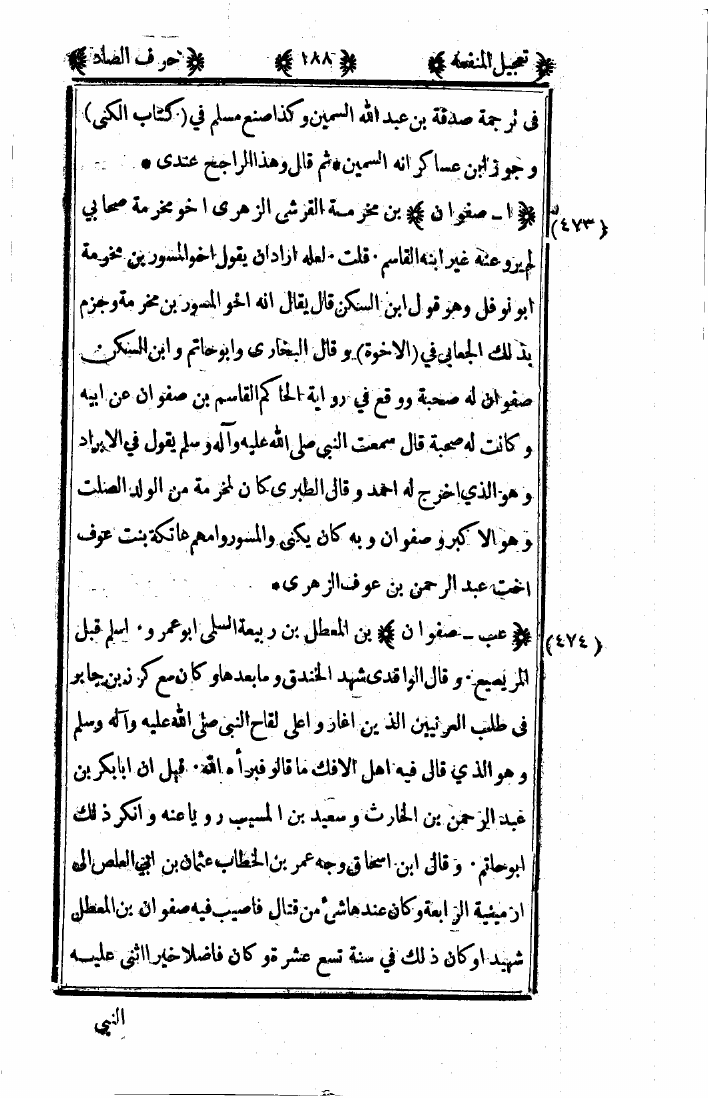 ﴿ تعجيل المنفعة ﴾ ﴿ ١٨٨ ﴾ ﴿ حرف الصاد ﴾
فى ترجمة صدقة بن عبد الله السمين وكذا صنع مسلم في (كتاب الكنى)
وجوز ابن عساكر انه السمين * ثم قال وهذا الراجح عندى *
(٤٧٣) ﴿ ا ــ صفوان ﴾ بن مخرمة القرشى الزهرى اخو مخرمة صحابي
لم يرو عنه غير ابنه القاسم ٠ قلت ٠ لعله اراد ان يقول اخو المسور بن مخرمة
ابو نوفل وهو قول ابن السكن قال يقال انه اخو المسور بن مخرمة وجزم
بذلك الجعابي في (الاخوة) و قال البخارى وابو حاتم و ابن السكن ٠
صفوان له صحبة ووقع في رواية الحاكم القاسم بن صفوان عن ابيه
وكانت له صحبة قال سمعت النبي صلى الله عليه وآله وسلم يقول في الابراد
و هو الذي اخرج له احمد و قال الطبرى كان لمخرمة من الولد الصلت
و هو الاكبر و صفوان و به كان يكنى والمسور وامهم عاتكة بنت عوف
اخت عبد الرحمن بن عوف الزهرى *
(٤٧٤) ﴿ عب ــ صفوان ﴾ بن المعطل بن ربيعة السلمى ابو عمرو ٠ اسلم قبل
المريسيع ٠ و قال الواقدى شهد الخندق و ما بعدها وكان مع كرز بن جابر
فى طلب العرنيين الذين اغاروا على لقاح النبي صلى الله عليه وآله وسلم
و هو الذي قال فيه اهل الافك ما قالوا فبرأه الله ٠ قيل ان ابابكر بن
عبد الرحمن بن الحارث و سعيد بن المسيب رويا عنه و انكر ذلك
ابو حاتم ٠ و قال ابن اسحاق وجه عمر بن الخطاب عثمان بن ابى العاص الى
ارمينية الرابعة وكان عندها شئ من قتال فاصيب فيه صفوان بن المعطل
شهيدا وكان ذلك في سنة تسع عشرة و كان فاضلا خيرا اثنى عليه
النبي